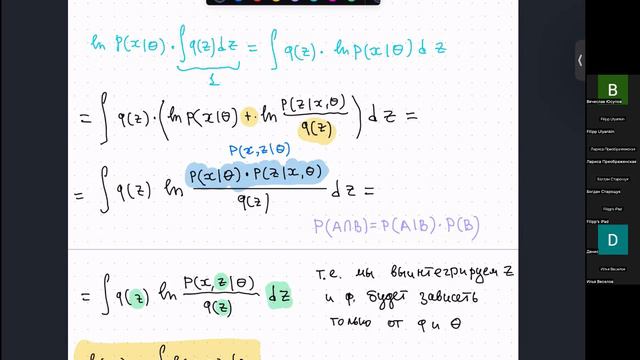 ln p(x|θ) · ∫ q(z) dz = ∫ q(z) · ln p(x|θ) dz
1
= ∫ q(z) · (ln p(x|θ) + ln p(z|x,θ) / q(z)) dz =
p(x,z|θ)
= ∫ q(z) ln p(x|θ) · p(z|x,θ) / q(z) dz =
P(A∩B) = P(A|B) · P(B)
= ∫ q(z) ln p(x,z|θ) / q(z) dz
т.е. мы выинтегрируем z
и ф. будет зависеть
только от q и θ
B
Вячеслав Юсупов
Filipp Ulyankin
Filipp Ulyankin
Лариса Преображенская
Лариса Преображенская
Богдан Старощук
Богдан Старощук
Filipp's iPad
Filipp's iPad
D
Данис
Илья Веселов
Илья Веселов